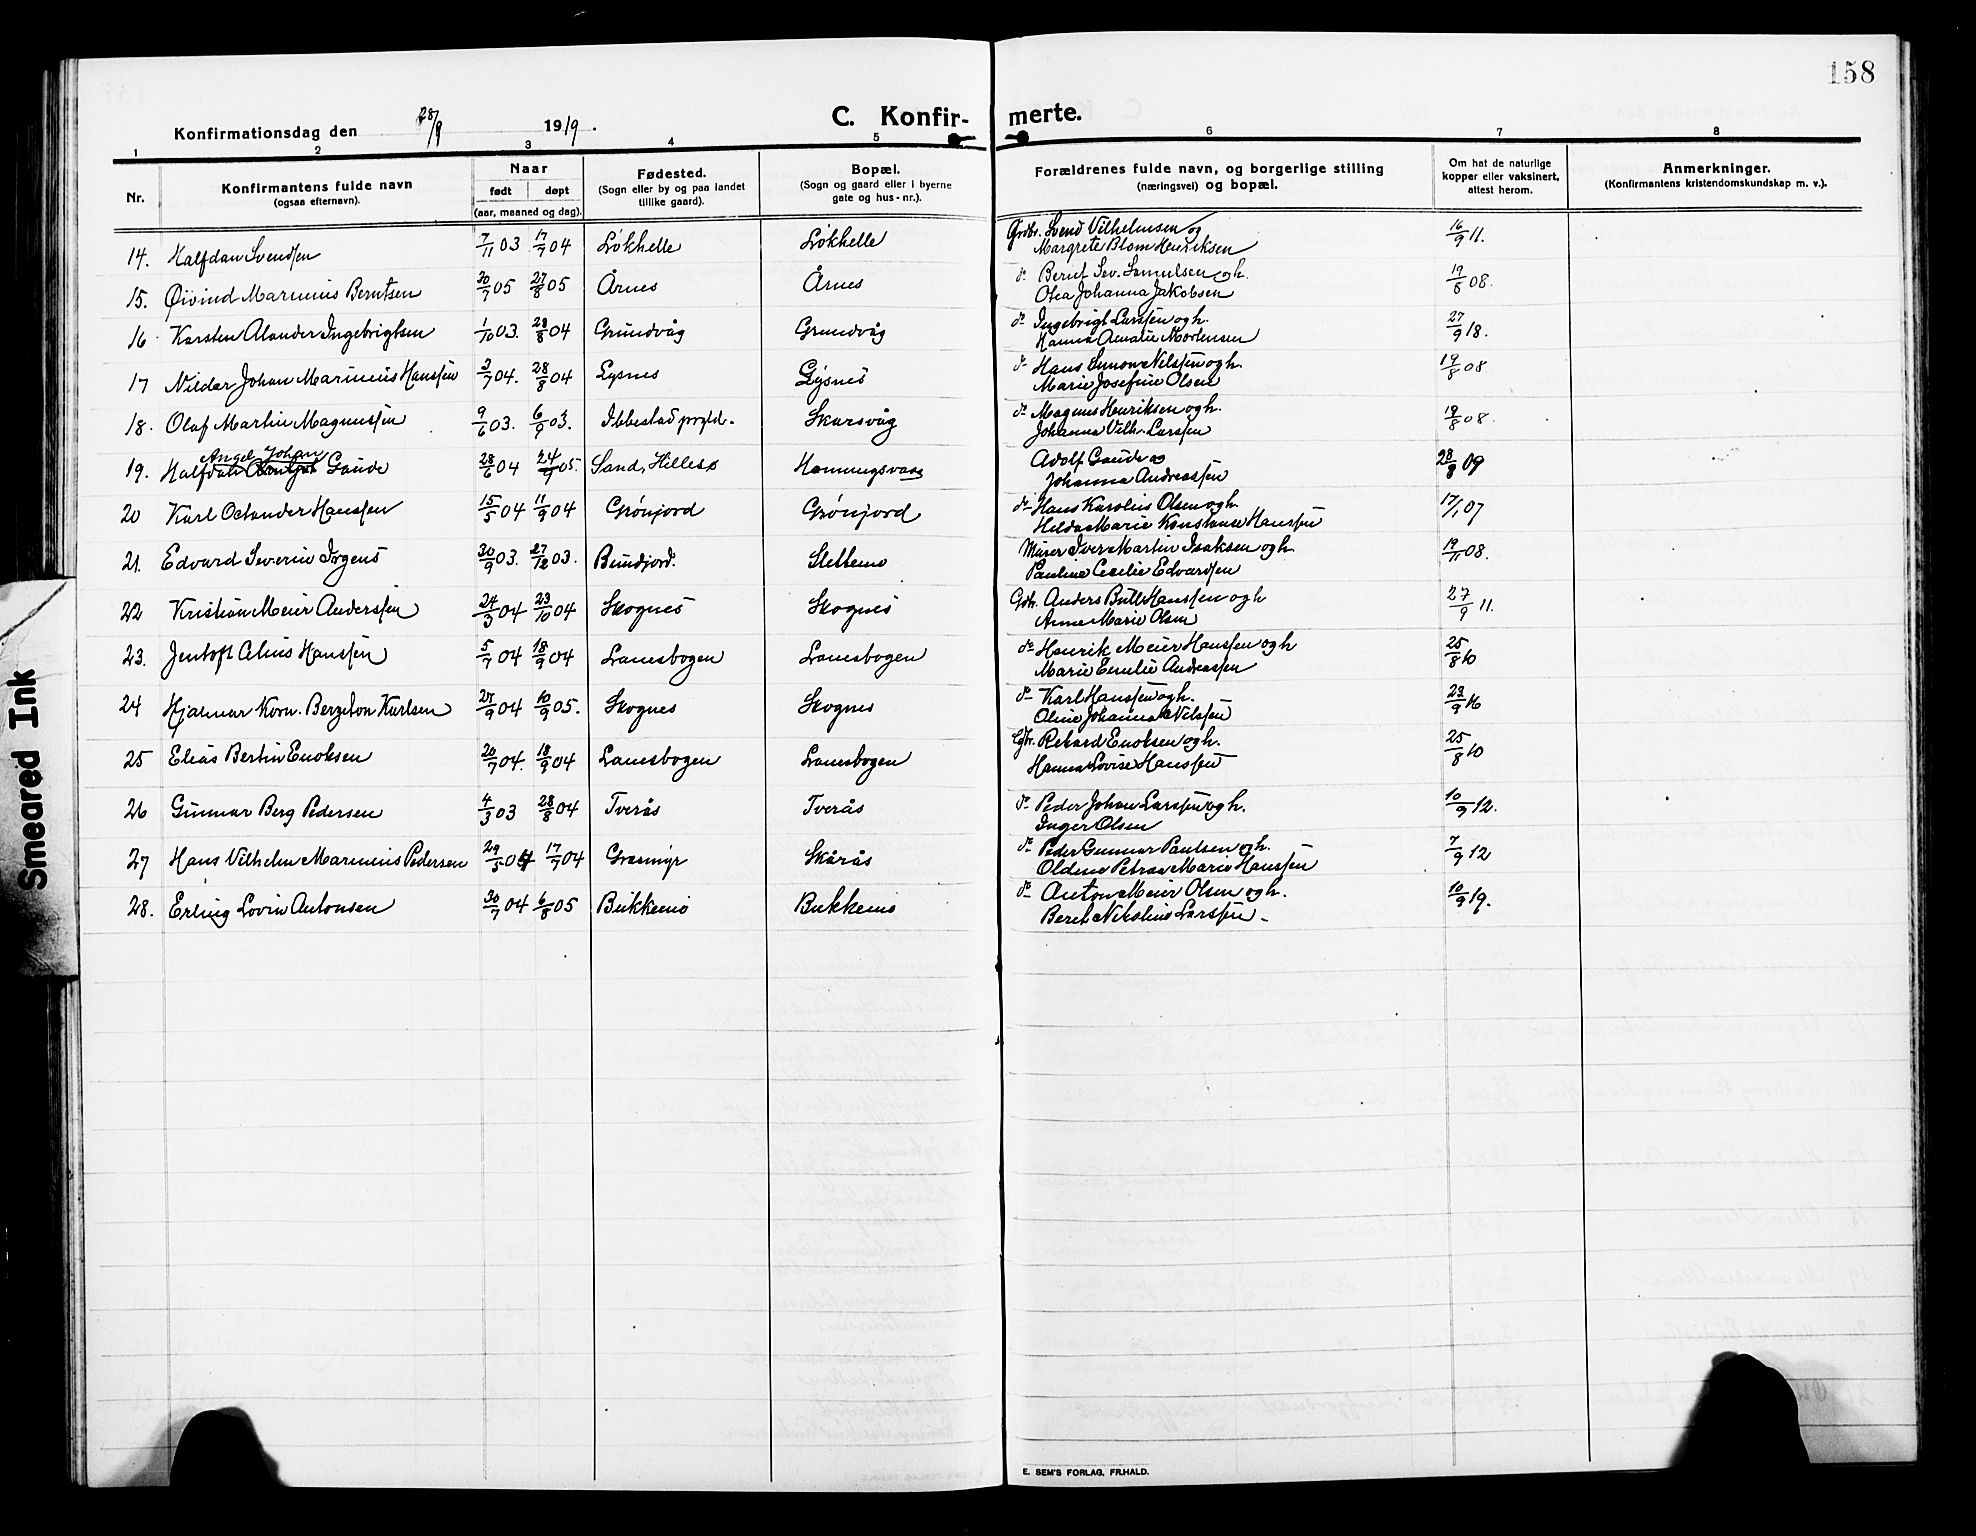 158
C. Konfir- merte.
Konfirmationsdag den 28/9 1919.
1 2 3 4 5 6 7 8
Nr. Konfirmantens fulde navn (ogsaa efternavn). Naar født døpt (aar, maaned og dag). Fødested. (Sogn eller by og paa landet tillike gaard). Bopæl. (Sogn og gaard eller i byerne gate og hus-nr.). Forældrenes fulde navn, og borgerlige stilling (næringsvei) og bopæl. Om hat de naturlige kopper eller vaksinert, attest herom. Anmerkninger. (Konfirmantens kristendomskundskap m. v.).
14. Halfdan Svendsen 7/11 03 17/7 04 Løkhelle Løkhelle Grdbr. Svend Vilhelmsen og Margrete Blom Henriksen 16/9 11.
15. Øivind Marinius Berntsen 30/7 05 27/8 05 Årnes Årnes do Bernt Sev. Samulsen og h. Otea Johanna Jakobsen 19/8 08.
16 Karsten Alander Ingebrigtsen 1/10 03. 28/8 04 Grundvåg Grundvåg do Ingebrigt Larssen og h. Hanna Amalie Mortensen 27/9 18.
17 Nildar Johan Marinius Hanssen 3/7 04. 28/8 04 Lysnes Lysnes do Hans Simon Nilssen og h. Marie Josefine Olsen 19/8 08
18. Olaf Martin Magnussen 9/6 03. 6/9 03. Ibbestad prgld. Skarsvåg do Magnus Henriksen og h. Johanna Vilh. Larssen 19/8 08.
19. Halfdan Angel Johan Gaude 28/6 04 24/9 05. Sand, Hillesø Honningsvaag Adolf Gaude og Johanna Andreassen 28/8 09
20 Karl Octander Hanssen 15/5 04 11/9 04 Grønjord Grønjord do Hans Karolius Olsen og h. Hilda Marie Konstanse Hanssen 17/1 07
21. Edvard Severin Irgens 30/9 03. 27/12 03. Bundjord. Slettemo Murer Iver Martin Isaksen og h. Pauline Cecilie Edvardsen 19/11 08.
22 Kristian Meier Anderssen 24/3 04 23/10 04 Skognes Skognes Gdb. Anders Bull Hanssen og h Anne Marie Olsen 27/9 11.
23. Jentoft Alius Hanssen 5/7 04 18/9 04 Lanesbogen Lanesbogen do Henrik Meier Hanssen og h Marie Emilie Andreassen 25/8 10
24 Hjalmar Korn. Berzeton Karlsen 27/9 04 10/9 05. Skognes Skognes do Karl Hanssen og h. Oline Johanna Nilssen 23/9 16
25 Elias Bertin Enoksen 20/7 04. 18/9 04 Lanesbogen Lanesbogen Rikard Enoksen og h. Hanna Lovise Hanssen 25/8 10
26 Gunnar Berg Pedersen 4/3 03 28/8 04 Tverås Tverås do Peder Johan Larssen og h. Inger Olsen 10/9 12.
27 Hans Vilhelm Marinius Pedersen 29/5 04 17/7 04 Græsmyr Skårås do Peder Gunnar Paulsen og h. Oldine Petraa Marie Hanssen 7/9 12
28. Erling Lovin Antonsen 30/7 04 6/8 05 Bukkemo Bukkemo do Anton Meier Olsen og h. Beret Nikoline Larssen. 10/9 19.
E. SEM'S FORLAG, FR.HALD.
Smeared Ink